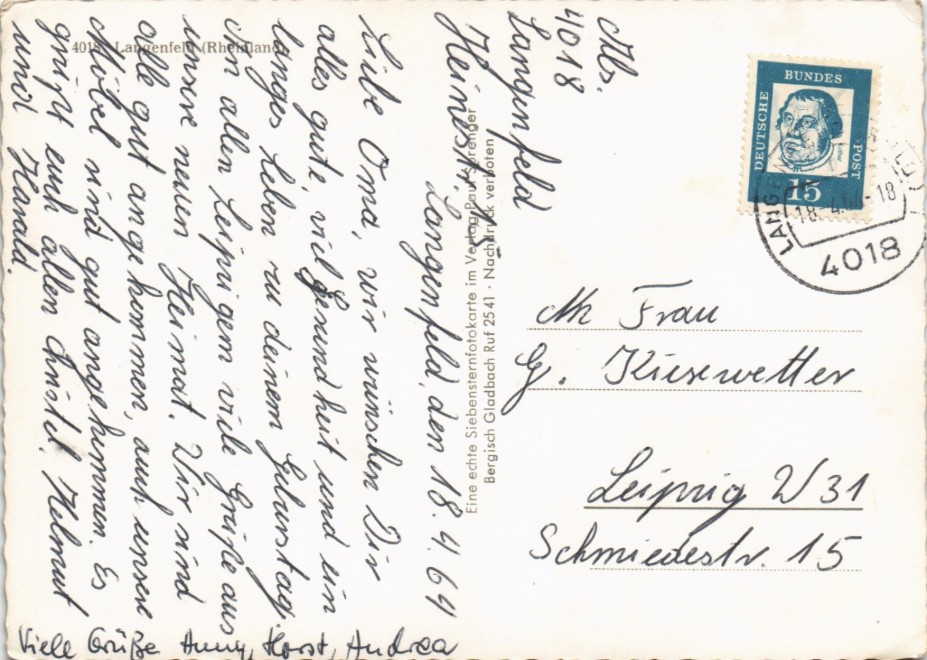 Abs.
4018
Langenfeld
Heinestr.
4018 Langenfeld (Rheinland)
Langenfeld, den 18.4.64
Liebe Oma, wir wünschen Dir
alles gute, viel Gesundheit und ein
langes Leben zu deinem Geburstag.
Von allen Leipzigern viele Grüße aus
unsere neuen Heimat. Wir sind
alle gut angekommen, auch unsere
Möbel sind gut angekommen. Es
grüßt euch allen Christel Helmut
und Harald.
Viele Grüße Anny, Horst, Andrea
Eine echte Siebensternfotokarte im Verlag Paul Sprenger
Bergisch Gladbach Ruf 2541 · Nachdruck verboten
DEUTSCHE
BUNDES
POST
15
4018
An Frau
G. Kiesewetter
Leipzig W 31
Schmiedestr. 15